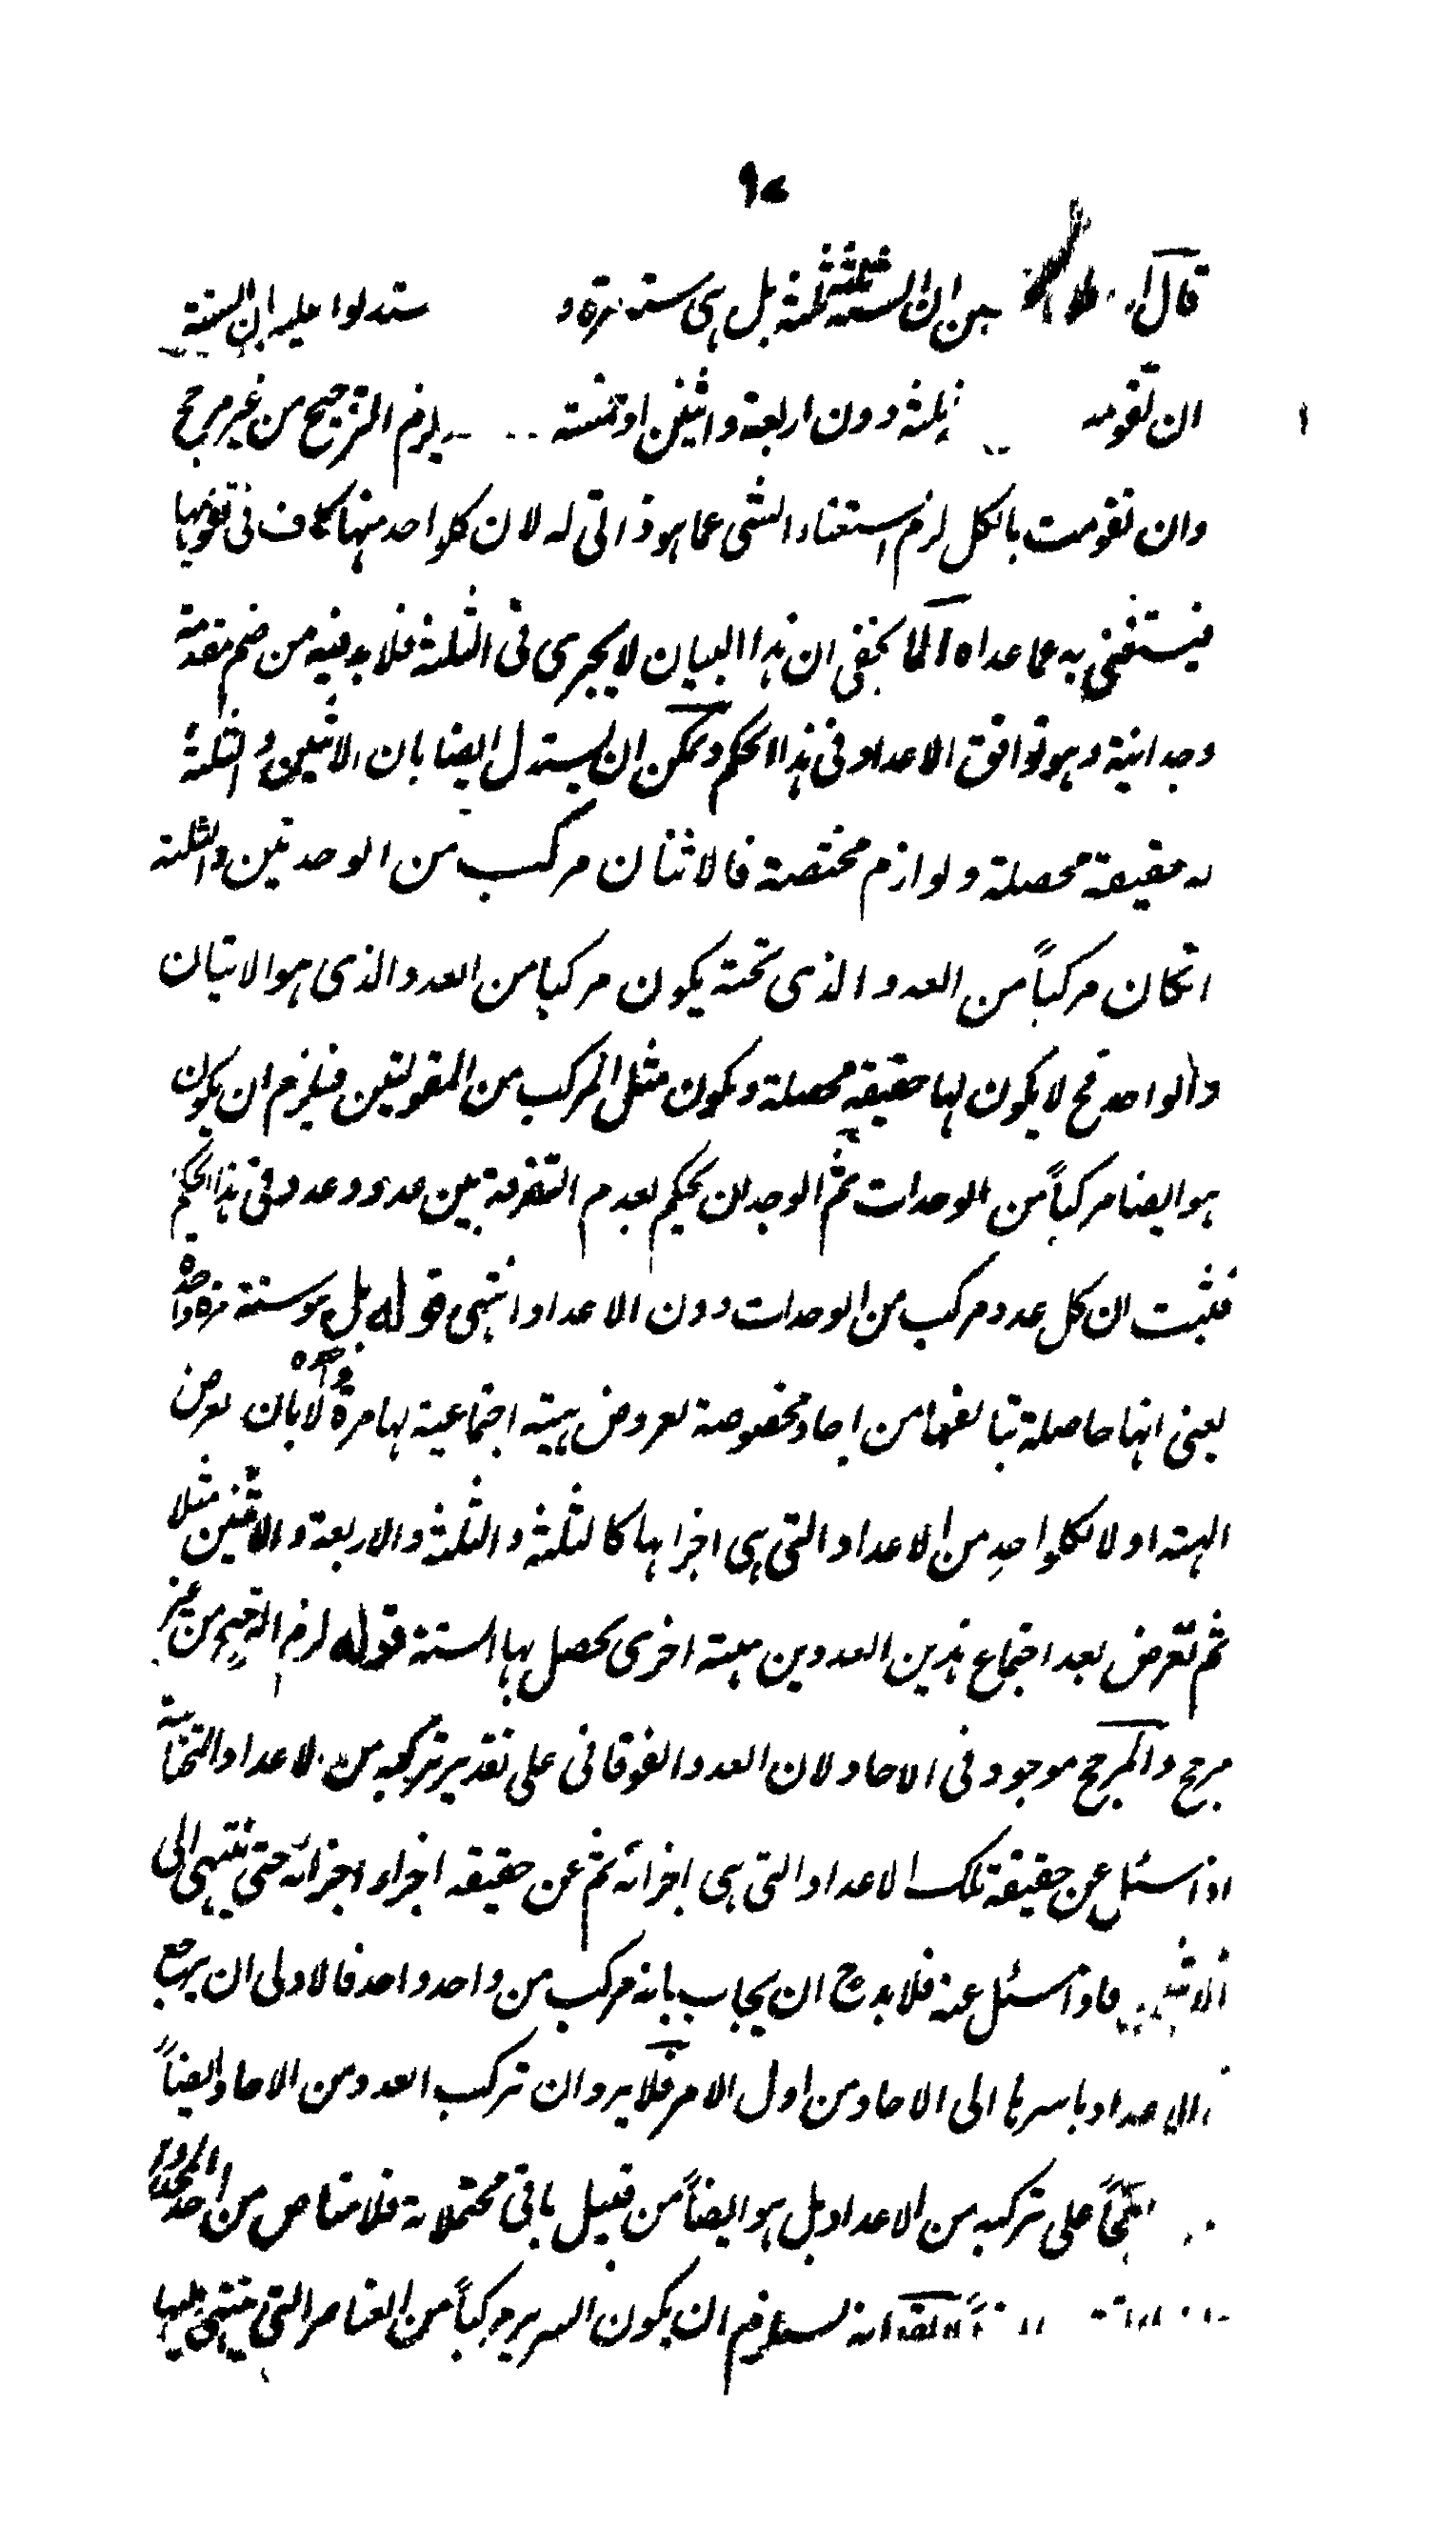 ٩٧
قال بين ان الستة ثلثة ثلثة بل هى ستة مرة و ستدلوا عليه ان الستة
ان تقومت ثلثة دون اربعة واثنين او خمسة يلزم الترجيح من غير مرجح
وان تقومت بالكل لزم استغناء الشى عما هو ذاتى له لان كلواحد منها كاف فى تقويمها
فيستغنى به عما عداه لا يخفى ان هذا البيان لا يجرى فى الثلثة فلا بد فيه من ضم مقدمة
وجدانية وهو توافق الاعداد فى هذا الحكم ويمكن ان يستدل ايضا بان الاثنين والثلثة
له حقيقة محصلة ولوازم مختصة فالاثنان مركب من الوحدتين والثلثة
انكان مركباً من العدد الذى تحته يكون مركبا من العدد الذى هو الاثنان
والواحد فح لا يكون لها حقيقة محصلة ويكون مثل المركب من المقولتين فيلزم ان يكون
هو ايضا مركباً من الوحدات ثم الوجدان يحكم بعدم التفرقة بين عدد وعدد فى هذا الحكم
فثبت ان كل عدد مركب من الوحدات دون الاعداد انتهى قوله بل هو ستة مرة واحدة
يعنى انها حاصلة بتالفها من احاد مخصوصة لعروض هيئة اجتماعية لها مرة واحدة لا بان يعرض
الهيئة اولا لكلواحدٍ من الاعداد التى هى اجزاءها كالثلثة والثلثة والاربعة والاثنين مثلا
ثم تعرض بعد اجتماع هذين العددين هيئة اخرى يحصل بها الستة قوله لزم الترجيح من غير
مرجح والمرجح موجود فى الاحاد لان العدد الفوقانى على تقدير تركبه من الاعداد التحتانية
اذا سئل عن حقيقة تلك الاعداد التى هى اجزائه ثم عن حقيقة اجزاء اجزائه حتى ينتهى الى
الاثنين فاذا سئل عنه فلا بد ح ان يجاب بانه مركب من واحد واحد فالاولى ان يرجع
الاعداد باسرها الى الاحاد من اول الامر فلا يرد ان تركب العدد من الاحاد ايضاً
على تركبه من الاعداد بل هو ايضاً من قبيل باقى محتملاته فلا مناص من احد المحذورين
انه يستلزم ان يكون السرير مركباً من العناصر التى ينتهى اليها